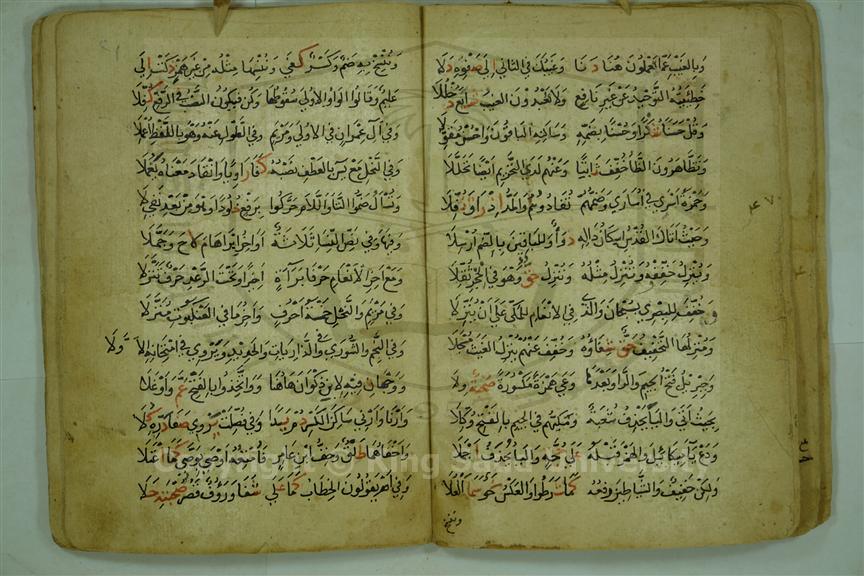 وبالغيب عما تعملون هنا دنا وغيبك في الثاني الى صفوه دلا
خطيئته التوحيد عن غير نافع ولا يعبدون الغيب شايع دخللا
وقل حسنا شكرا وحسنا بضمه وساكنه الباقون واحسن مقولا
وتظاهرون الظا خفف ثابتا وعنهم لدى التحريم ايضا تحللا
وحمزة اسرى في اسارى وضمهم تفادوهم والمد اذ راق نفلا
وحيث اتاك القدس اسكان داله دواء وللباقين بالضم ارسلا
وينزل خففه وتنزل مثله وننزل حق وهو في الحجر ثقلا
وخفف للبصري بسبحان والذي في الانعام للمكي على ان ينزلا
ومنزلها التخفيف حق شفاؤه وخفف عنهم ينزل الغيث مسجلا
وجبريل فتح الجيم والرا وبعدها وعى همزة مكسورة صحبة ولا
بحيث اتى واليا يحذف شعبة ومكيهم في الجيم بالفتح وكلا
ودع يا ميكائيل والهمز قبله على حجة واليا يحذف اجملا
ولكن خفيف والشياطين رفعه كما شرطوا والعكس نحو سما العلا
وننسخ
وننسخ به ضم وكسر كفى وننسها مثله من غير همز ذكت الى
عليم وقالوا الواو الاولى سقوطها وكن فيكون النصب في الرفع كفلا
وفي آل عمران في الاولى ومريم وفي الطول عنه وهو باللفظ اعملا
وفي النحل مع يس بالعطف نصبه كفى راويا وانقاد معناه يعملا
وتسال ضموا التا واللام حركوا برفع خلودا وهو من بعد نفي لا
وفيها وفي نص النسا ثلاثة اواخر ابراهام لاح وجملا
ومع آخر الانعام حرفا براءة اخيرا وتحت الرعد حرف تنزلا
وفي مريم والنحل خمسة احرف وآخر ما في العنكبوت منزلا
وفي النجم والشورى وفي الذاريات والحديد ويروي في امتحانه الاولا
ووجهان فيه لابن ذكوان هاهنا وواتخذوا بالفتح عم واوغلا
وارنا وارني ساكنا الكسر دم يدا وفي فصلت يروي صفا دره كلا
واخفاهما طلق وخف ابن عامر فامتعه اوصى بوصى كما اعتلا
وفي ام يقولون الخطاب كما علا شفا ورؤف قصر صحبته حلا